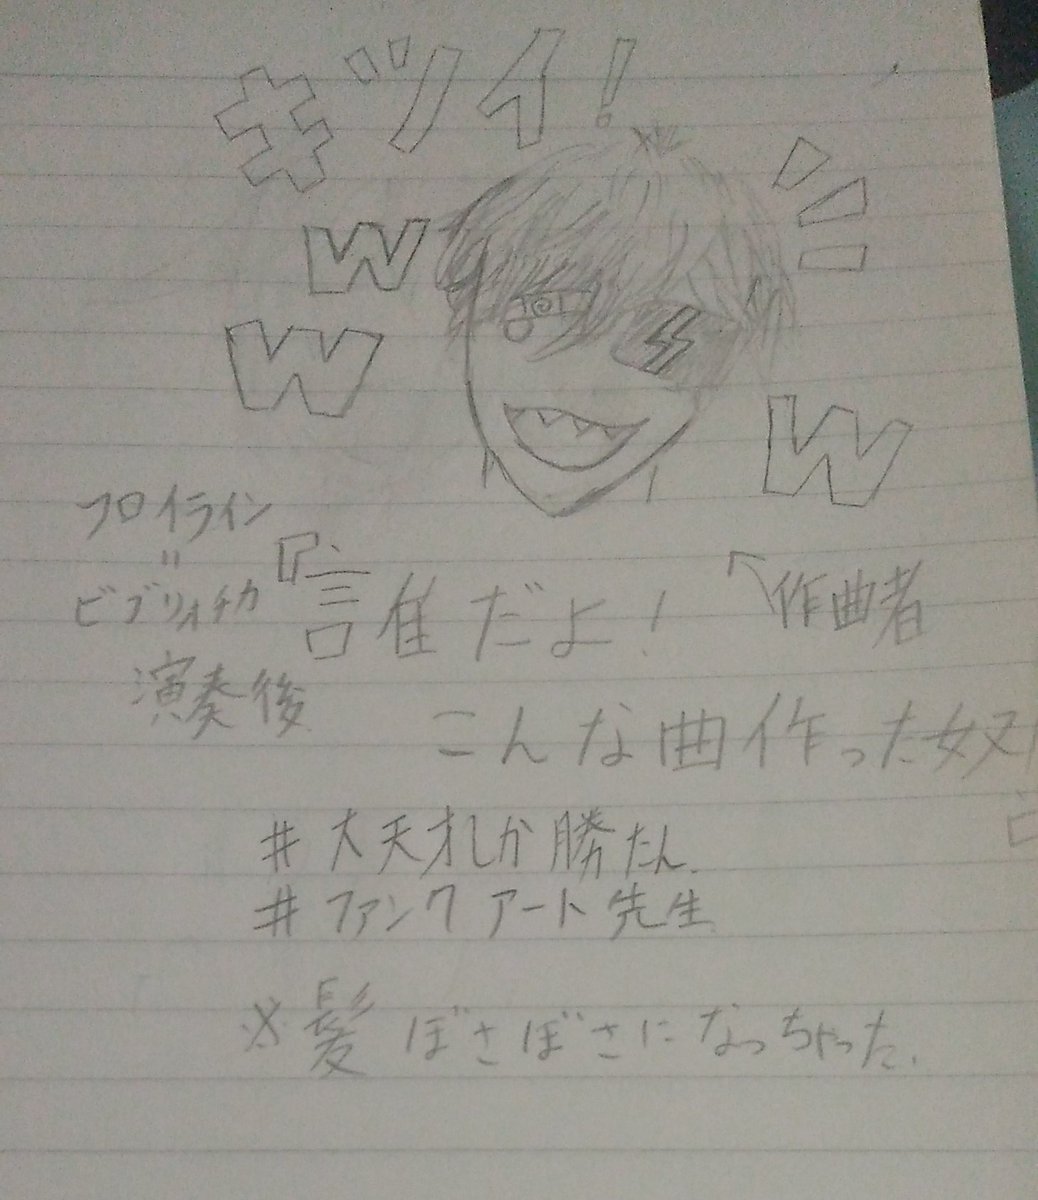 キツイ！
w
w
w
フロイライン
=
ビブリオチカ
演奏後
『誰だよ！
こんな曲作った奴
作曲者
#大天才しか勝たん
#ファンクアート先生
※髪ぼさぼさになっちゃった.